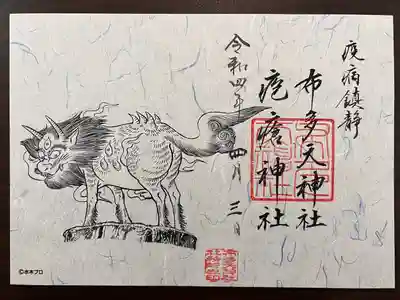 疫病鎮静
布多天神社
疱瘡神社
令和四年
四月三日
©水木プロ